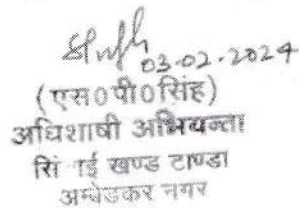 03-02-2024
(एस०पी०सिंह)
अधिशाषी अभियन्ता
खण्ड टाण्डा
अम्बेडकर नगर